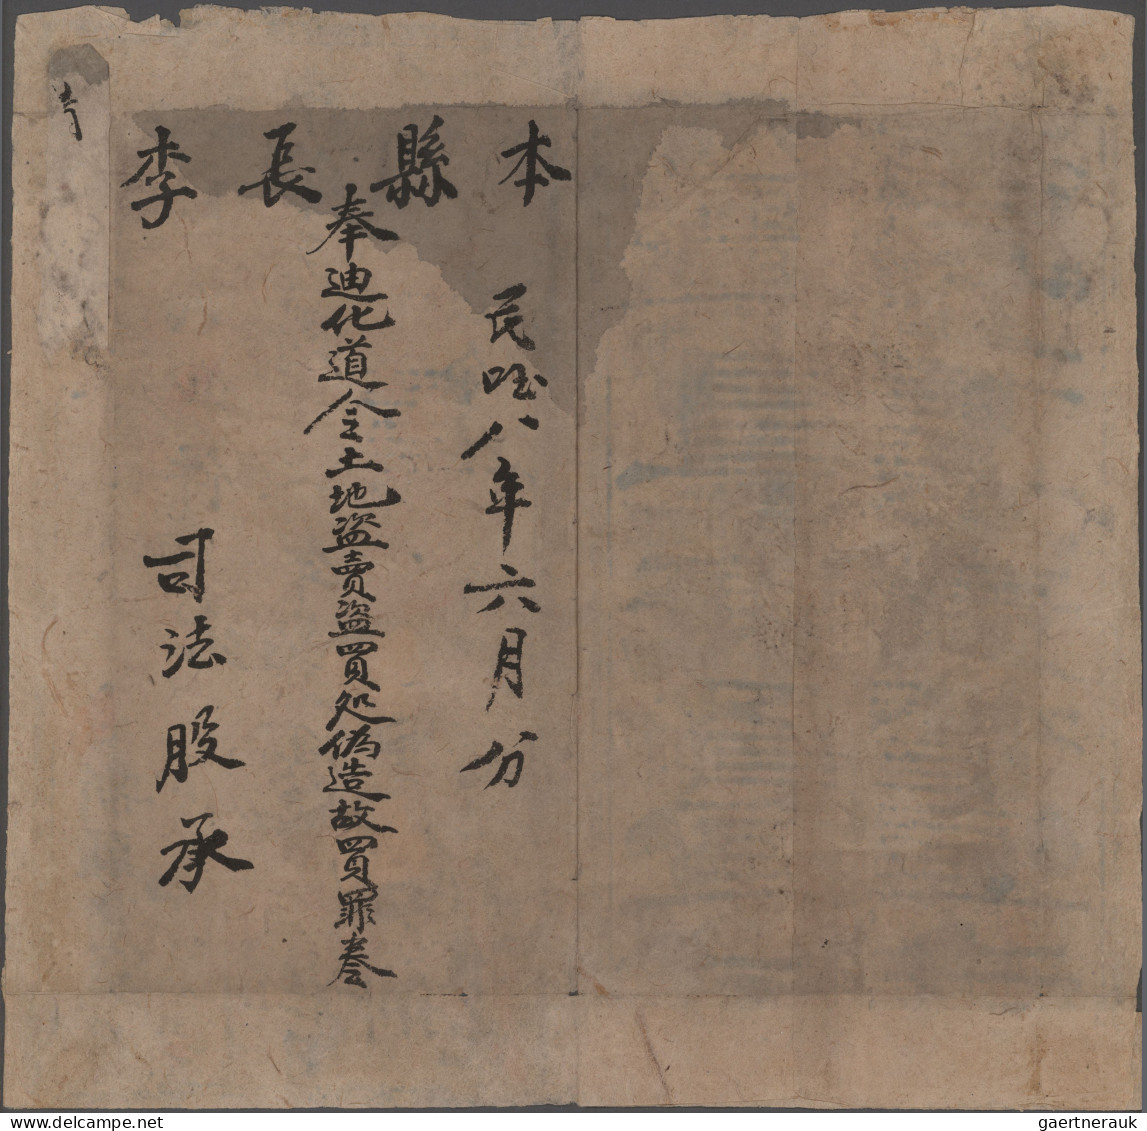 本縣長李
民国八年六月分
奉迪化道令土地盜賣盜買処偽造故買罪卷
司法股承
gaertnerauk